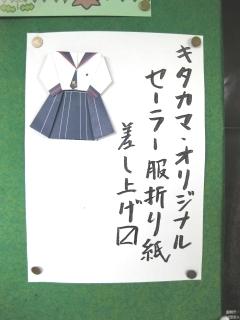 キタカマ・オリジナル
セーラー服折り紙
差し上げ〼